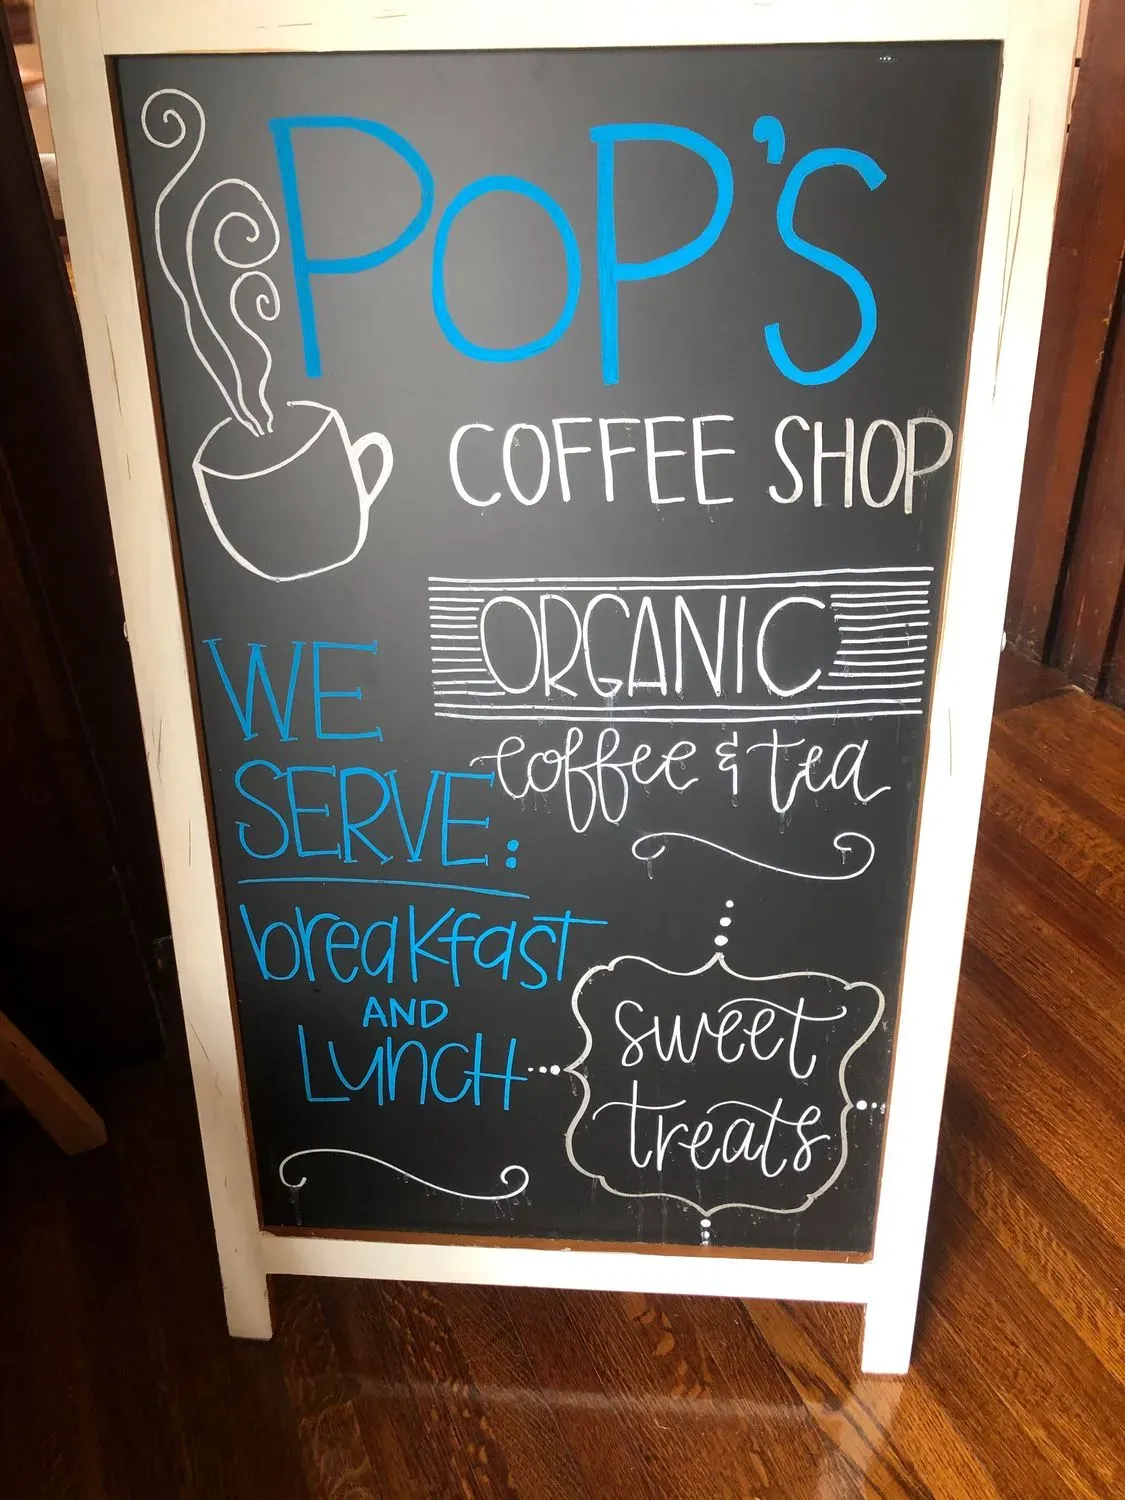 POP'S
COFFEE SHOP
ORGANIC
coffee & tea
WE
SERVE:
breakfast
AND
LUNCH
sweet
treats